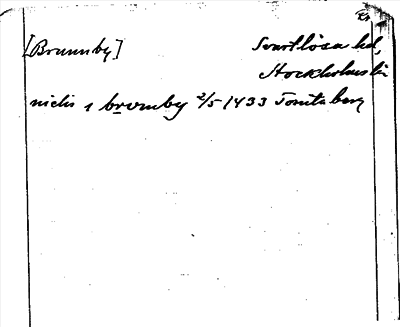 [Brunnby] Svartlösa hd,
Stockholms län
nielis i bromby 2/5 1433 Tomta